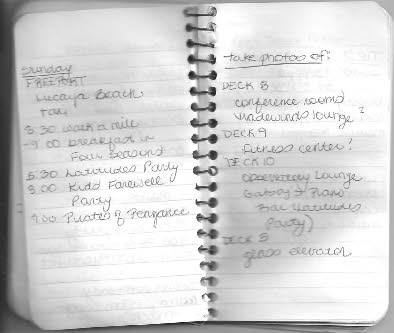 Sunday
FREEPORT
Lucaya Beach
Tour
8:30 walk a mile
-9:00 breakfast in
Four Seasons
5:30 Latitudes Party
8:00 Kidd Farewell
Party
9:00 Pirates of Penzance
take photos of:
DECK 8
conference rooms
windwinds lounge?
DECK 9
fitness center!
DECK 10
Observatory Lounge
Gatsby's Piano
Bar (Latitudes
Party)
DECK 5
glass elevator